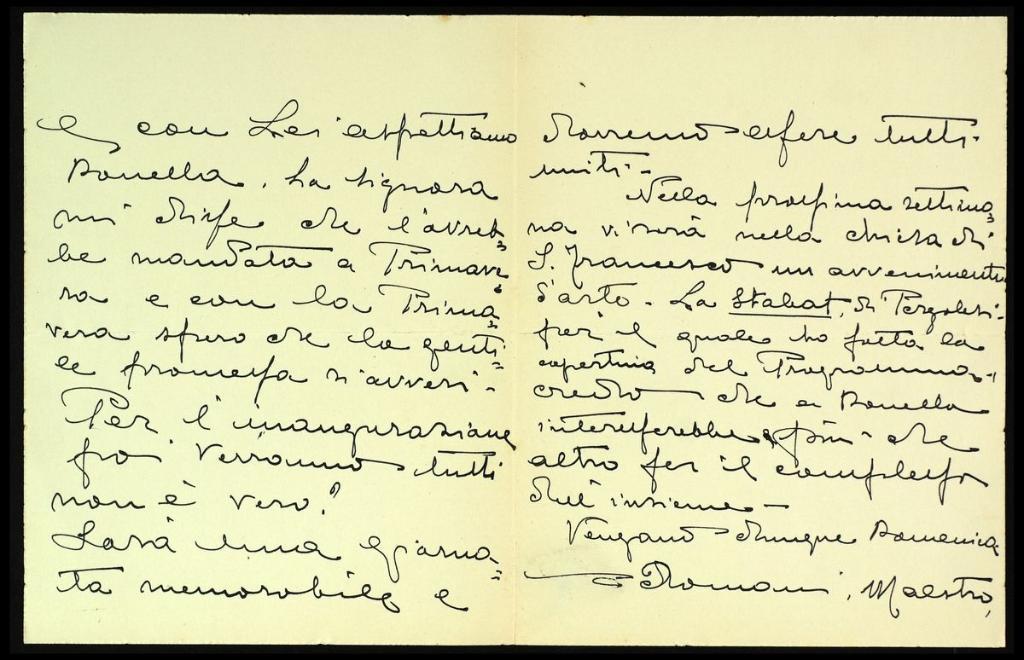 e con Lei aspettiamo
Donella. La Signora
mi disse che l'avreb=
be mandata a Primave=
ra e con la Prima=
vera spero che la genti=
le promessa s'avveri -
Per l'inaugurazione
poi verranno tutti
non è vero?
Sarà una giorna=
ta memorabile e
dovremo essere tutti
uniti -
Nella prossima settima=
na vi sarà nella chiesa di
S. Francesco un avvenimento
d'arte - Lo Stabat, di Pergolesi -
per il quale ho fatto la
copertina del Programma -
credo che a Donella
interesserebbe più che
altro per il complesso
dell'insieme -
Vengano dunque Domenica
Domani, Maestro,